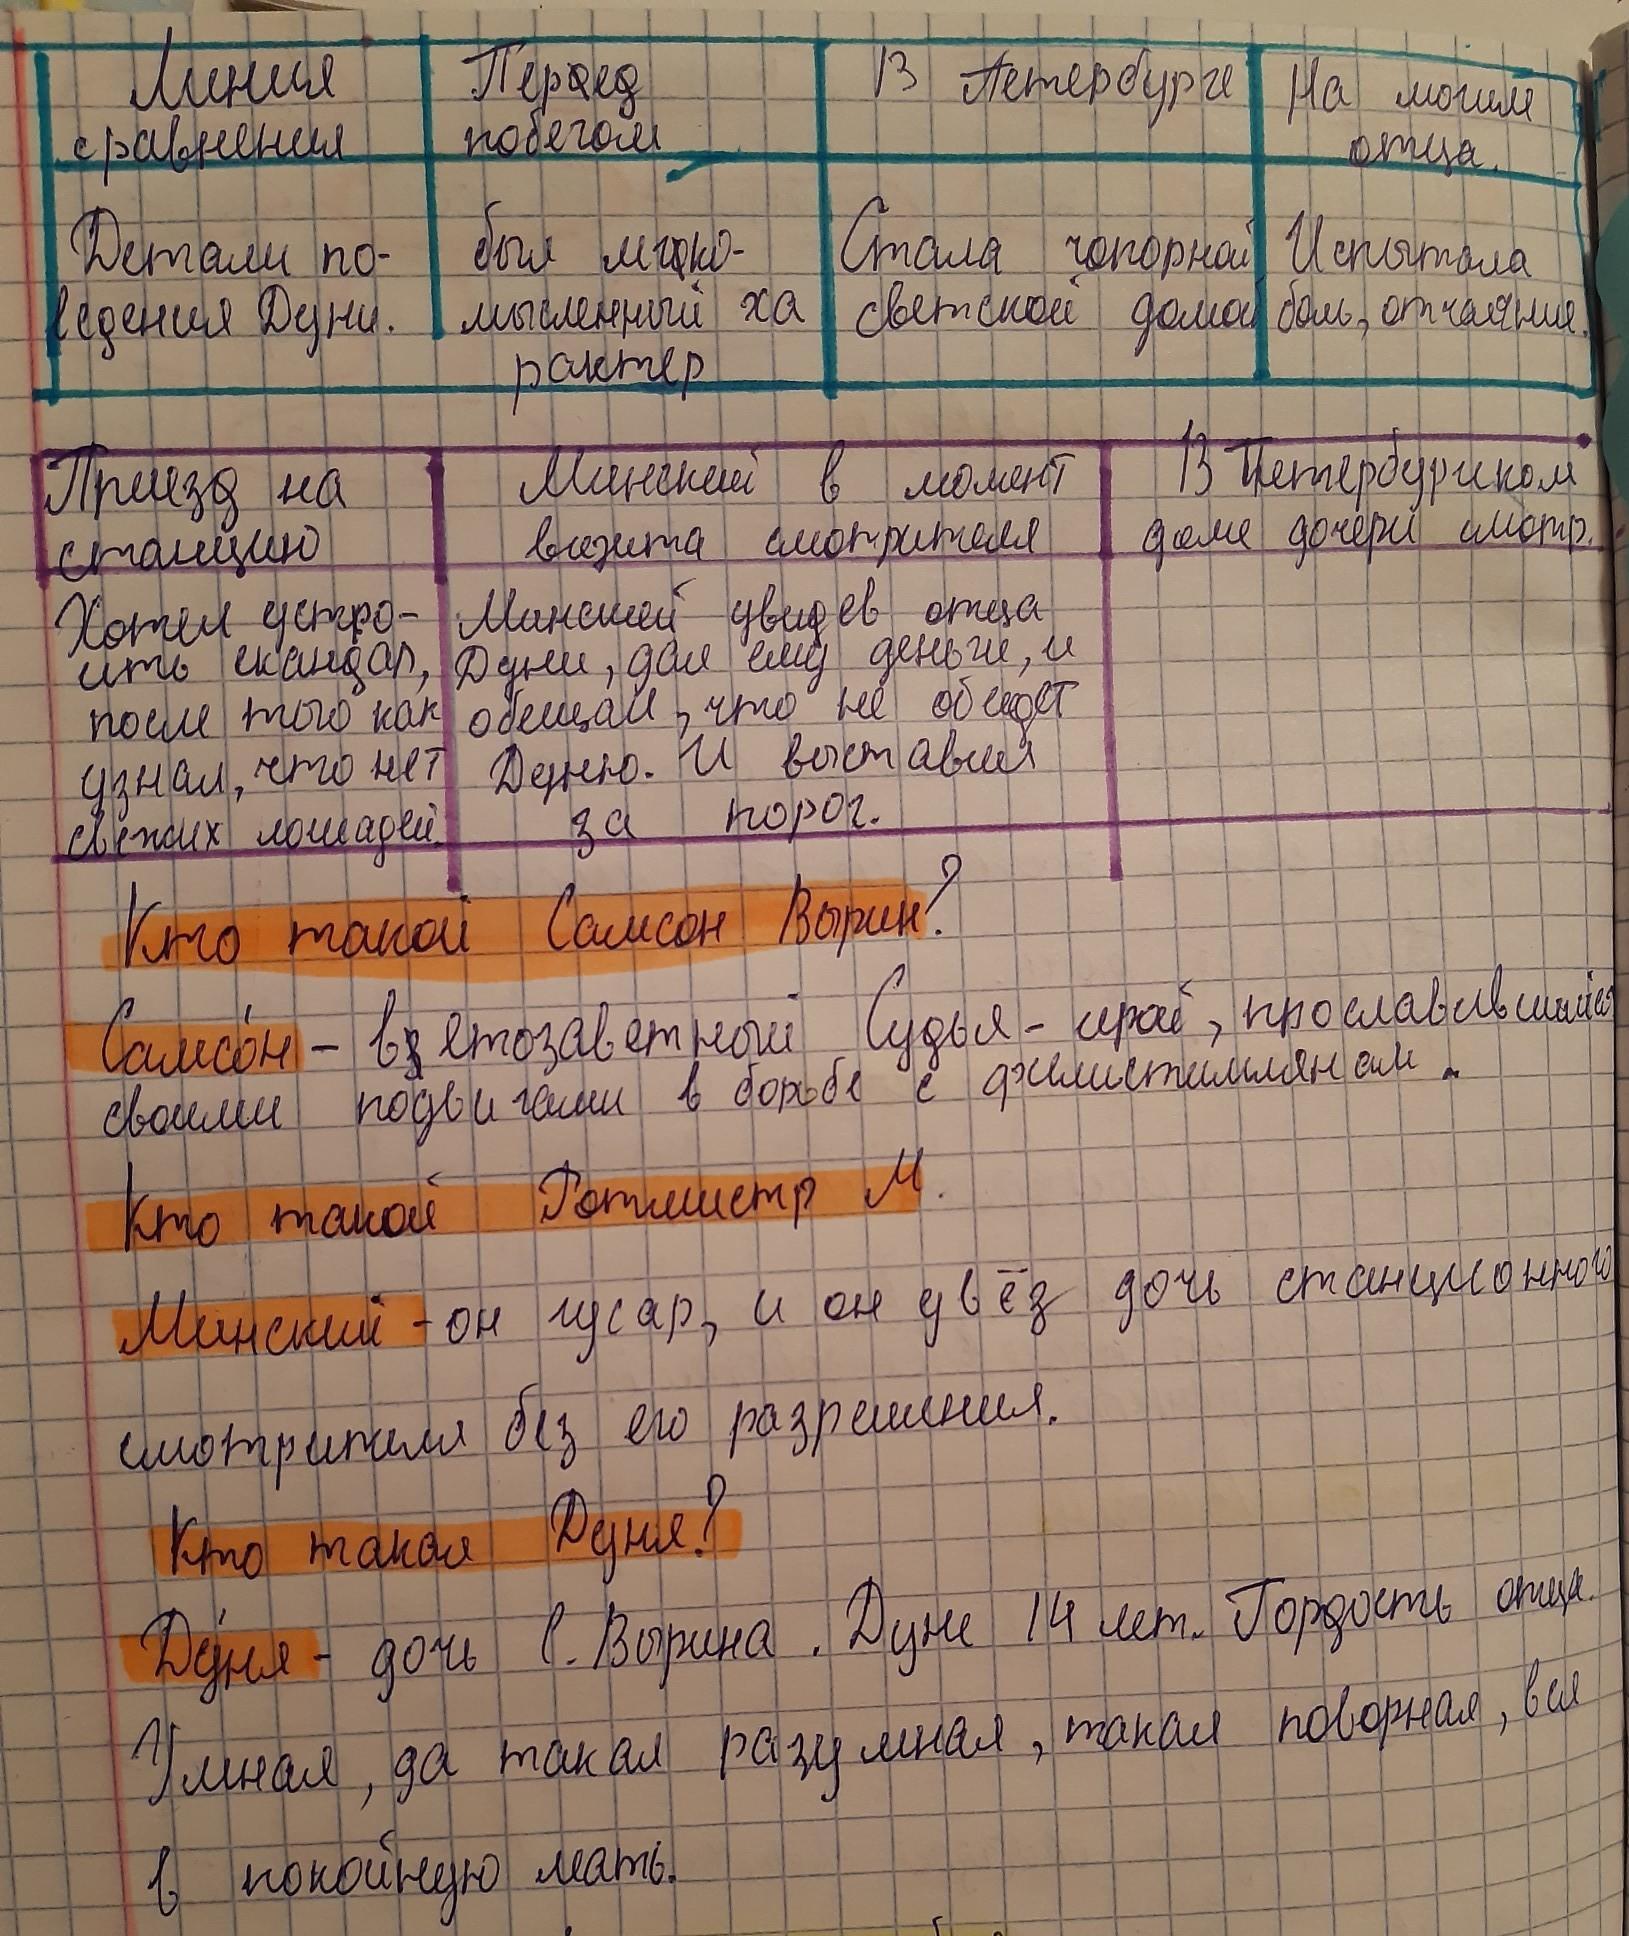 Линия Перед В Петербурге На могиле
сравнения побегом отца.
Детали по- был легко- Стала чопорной Испытала
ведения Дуни. мысленный ха светской домой боль, отчаяние.
рактер
Приезд на Минский в момент В Петербургском
станцию визита смотрителя доме дочери смотр.
Хотел устро- Минский увидев отца
ить скандал, Дуни, дал ему деньги, и
после того как обещал, что не обидет
узнал, что нет Дуню. И выставил
свежих лошадей. за порог.
Кто такой Самсон Вырин?
Самсо́н - ветхозаветный Судья - ирой, прославившийся
своими подвигами в борьбе с филистимлянам.
Кто такой Ротмистр М.
Минский - он гусар, и он увёз дочь станционного
смотрителя без его разрешения.
Кто такая Дуня?
Ду́ня - дочь С. Вырина. Дуне 14 лет. Гордость отца.
Умная, да такая разумная, такая поворная, вся
в покойную мать.